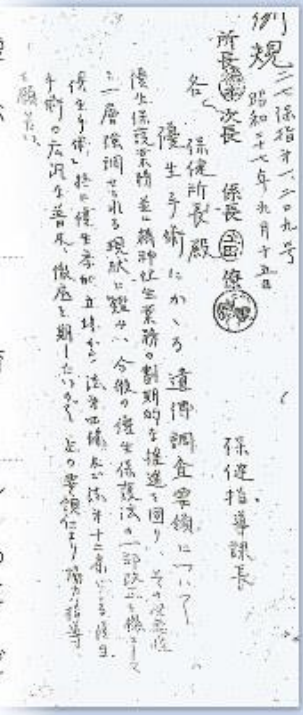 例規
二七保指第一二〇九号
昭和二十七年九月十五日
所長 次長 係長 僚
保健指導課長
各保健所長殿
優生手術にかゝる遺伝調査要領について
優生保護業務並に精神衛生業務の劃期的な推進を図り、その必要性
も一層強調せられる現状に鑑み、今般の優生保護法の一部改正を機として
優生手術、特に優生学的立場から法第四條及び法第十二條による優生
手術の広汎な普及、徹底を期したいので、左の要領により協力指導
を願いたい